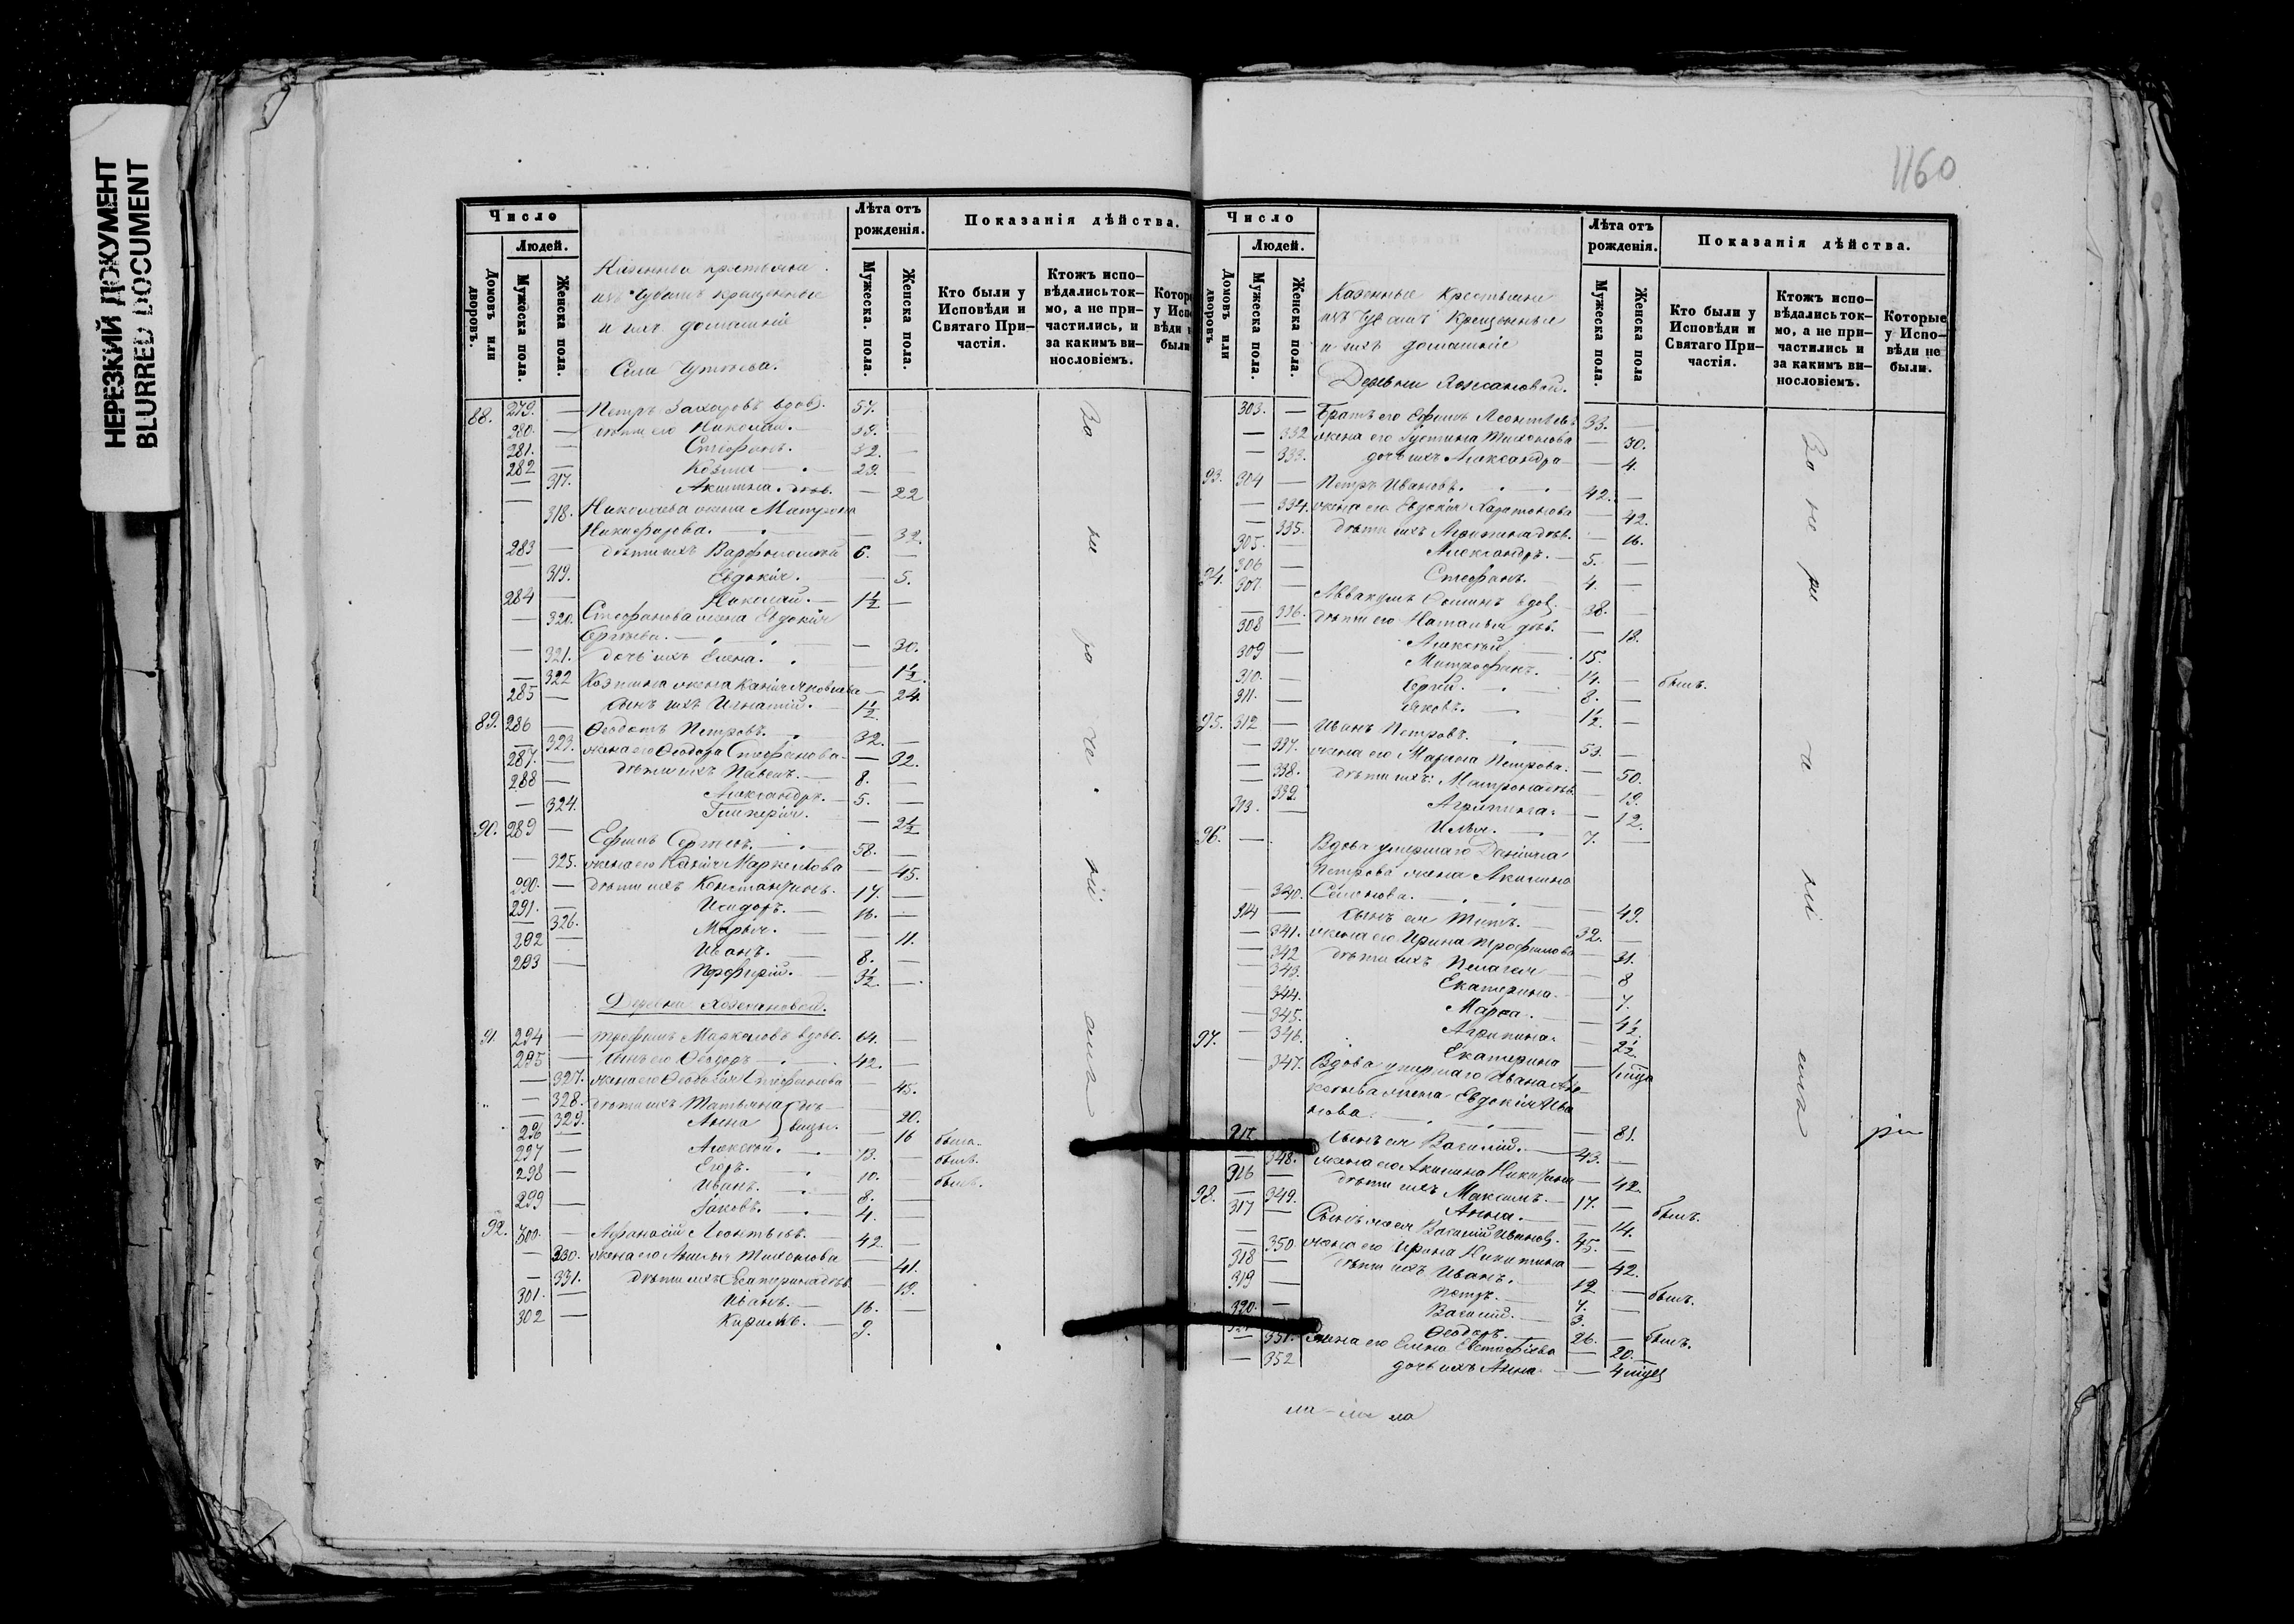 НЕРЕЗКИЙ ДОКУМЕНТ
BLURRED DOCUMENT
Число
Людей.
Домовъ или дворовъ.
Мужеска пола.
Женска пола.
Казенные крестьяне
изъ Чувашъ крещенные
и ихъ домашніе
Села
Лѣта отъ рожденія.
Мужеска. пола.
Женска пола.
Показанія дѣйства.
Кто были у Исповѣди и Святаго Причастія.
Ктожъ исповѣдались токмо, а не причастились, и за какимъ винословіемъ.
88. 279. — Петръ Захаровъ вдов. 57. —
280. — дѣти его Николай. — 39. —
281. — Стефанъ. 32. —
282 — Козма — 29. —
— 317. Акилина. дѣв. — 22
— 318. Николаева жена Матрона
Никифорова. — 32.
283 — дѣти ихъ Варфоломей 6. —
— 319. Евдокія. — 5.
284 — Николай. — 1½ —
— 320. Стефанова жена Евдокія
Сергѣева. — 30.
— 321. дочь ихъ Елена. — 1½.
— 322 Козмина жена Ксенія Яковлева — 24.
285 — сынъ ихъ Игнатій. — 1½.
89. 286 — Ѳеодотъ Петровъ. 32. —
— 323. жена его Ѳеодора Стефанова — 32.
287. — дѣти ихъ Павелъ. — 8. —
288 — Александръ. — 5. —
— 324. Гликерія. — 2½
90. 289 — Ефимъ Сергѣевъ. 58. —
— 325. жена его Ксенія Маркелова — 45.
290. — дѣти ихъ Константинъ. 17. —
291. — Исидоръ. — 16. —
— 326. Марья. — 11.
292 — Иванъ. — 8. —
293 — Порфирій. — 3½. —
Деревни Кожановой.
91 294 — Трофимъ Маркеловъ вдов. 64. —
295 — сынъ его Ѳеодоръ — 42. —
— 327. жена его Ѳеодосія Стефанова — 45.
— 328. дѣти ихъ Татьяна дѣ- — 20.
— 329. Анна } вицы. — 16 была.
296 — Алексѣй. 13. — былъ.
297 — Егоръ. 10. — былъ.
298 — Иванъ. 8. —
299 — Іаковъ. 4. —
92. 300. — Афанасій Леонтьевъ. — 42 —
— 330. жена его Анисья Тихонова — 41.
— 331. дѣти ихъ Екатерина дѣв. — 19.
301. — Иванъ. — 16. —
302 — Кирилъ. — 9.
1160
Число
Людей.
Домовъ или дворовъ.
Мужеска пола.
Женска пола.
Казенные Крестьяне
изъ Чувашъ Крещенные
и ихъ домашніе
Деревни Кожановой.
Лѣта отъ рожденія.
Мужеска пола.
Женска пола
Показанія дѣйства.
Кто были у Исповѣди и Святаго Причастія.
Ктожъ исповѣдались токмо, а не причастились и за какимъ винословіемъ.
Которые у Исповѣди не были.
303. — Братъ его Ефимъ Леонтьевъ 33. —
— 332 жена его Іустина Тихонова — 30.
— 333. дочь ихъ Александра — 4.
93. 304 — Петръ Ивановъ. 42. —
— 334. жена его Евдокія Харитонова — 42.
— 335. дѣти ихъ Агрипина дѣв. — 16.
305. — Александръ. — 5. —
306 — Стефанъ. 4. —
94. 307. — Аввакумъ Ѳоминъ вдов. 38. —
— 336. дѣти его Наталья дѣв. — 18.
308 — Алексѣй. — 15. —
309 — Митрофанъ. — 14. — былъ.
310. — Сергій. 8. —
311. — Іаковъ. 1½. —
95. 312 — Иванъ Петровъ. 53. —
— 337. жена его Марина Петрова. — 50.
— 338. дѣти ихъ: Матрона дѣв. — 19.
— 339. Агрипина. — 12.
313. — Илья. 7. —
96. — Вдова умершаго Даніила
Петрова жена Акилина
— 340. Семенова. — 49.
314 — сынъ ея Титъ. 32. —
— 341. жена его Ирина Трофимова — 31.
— 342 дѣти ихъ Пелагея — 8
— 343. Екатерина. — 7.
— 344. Марѳа. — 4½
— 345. Агрипина. — 2½.
— 346. Екатерина —
97. — 347. Вдова умершаго Ивана
жена Евдокія Ива
нова. — 81.
— сынъ ея Василій. 43. —
— 348. жена его Акилина Никитина — 42.
316 — дѣти ихъ Максимъ. — 17. — былъ.
— 349. Анна. — 14.
98. 317 — Василій Ивановъ. 45. —
— 350. жена его Ирина Никитина — 42.
318 — дѣти ихъ Иванъ. 12 — былъ.
319 — Петръ. 7. —
320. — Василій. 3.
Ѳеодоръ. — 26. — былъ.
— 351. жена его Елена Евстафіева — 20.
— 352 дочь ихъ Анна — 4